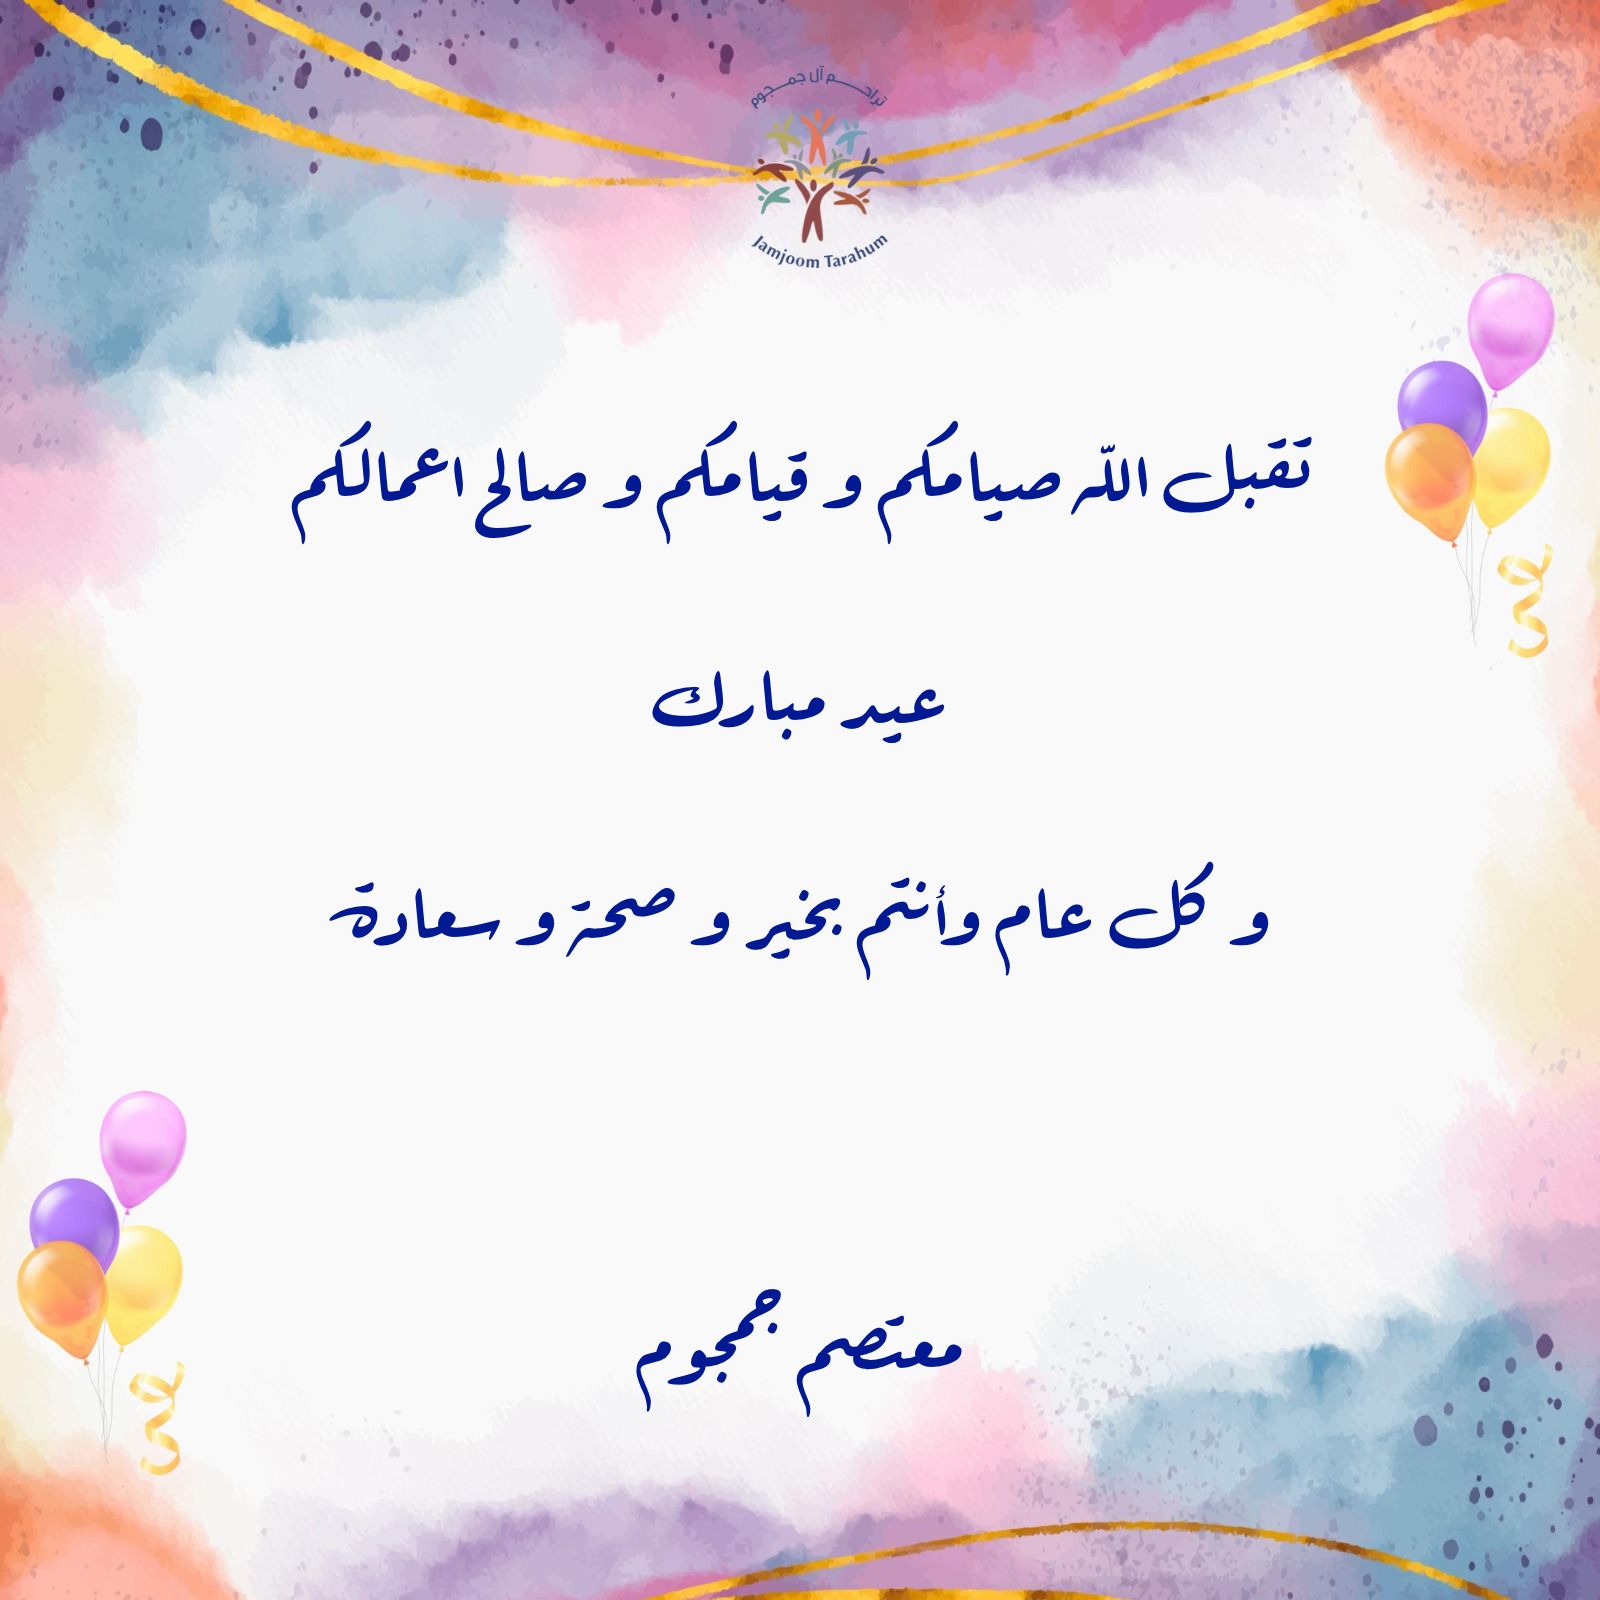 تراحم آل جمجوم
Jamjoom Tarahum
تقبل اللّه صيامكم و قيامكم و صالح اعمالكم
عيد مبارك
و كل عام وأنتم بخير و صحة و سعادة
معتصم جمجوم